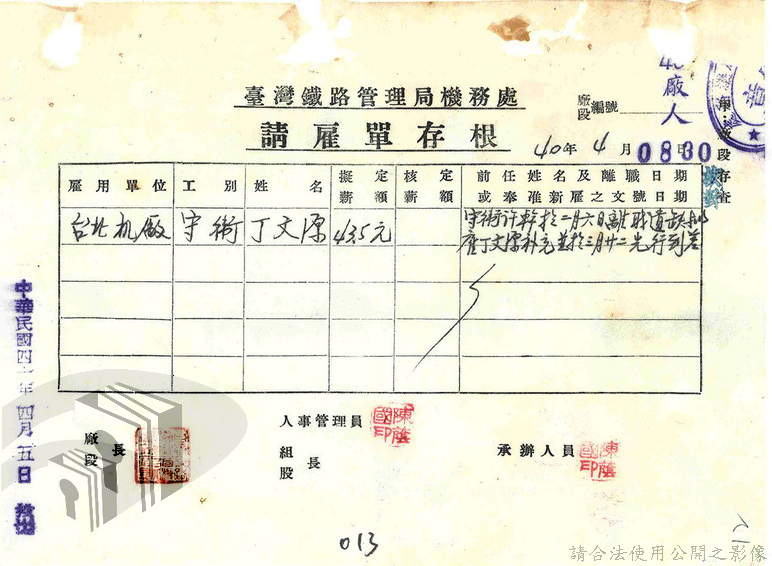 40
廠人
臺灣鐵路管理局機務處
廠段編號
請雇單存根
40年4月 日
0830
單:廠段存查
雇用單位 工別 姓名 擬定薪額 核定薪額 前任姓名及離職日期或奉准新雇之文號日期
台北机廠 守衛 丁文源 435元 守衛許幹於二月六日離職遺缺
雇丁文源補充並於三月廿二先行到差
中華民國四十年四月五日
人事管理員
陳蔭國印
廠段長
組股長
承辦人員
陳蔭國印
013
請合法使用公開之影像